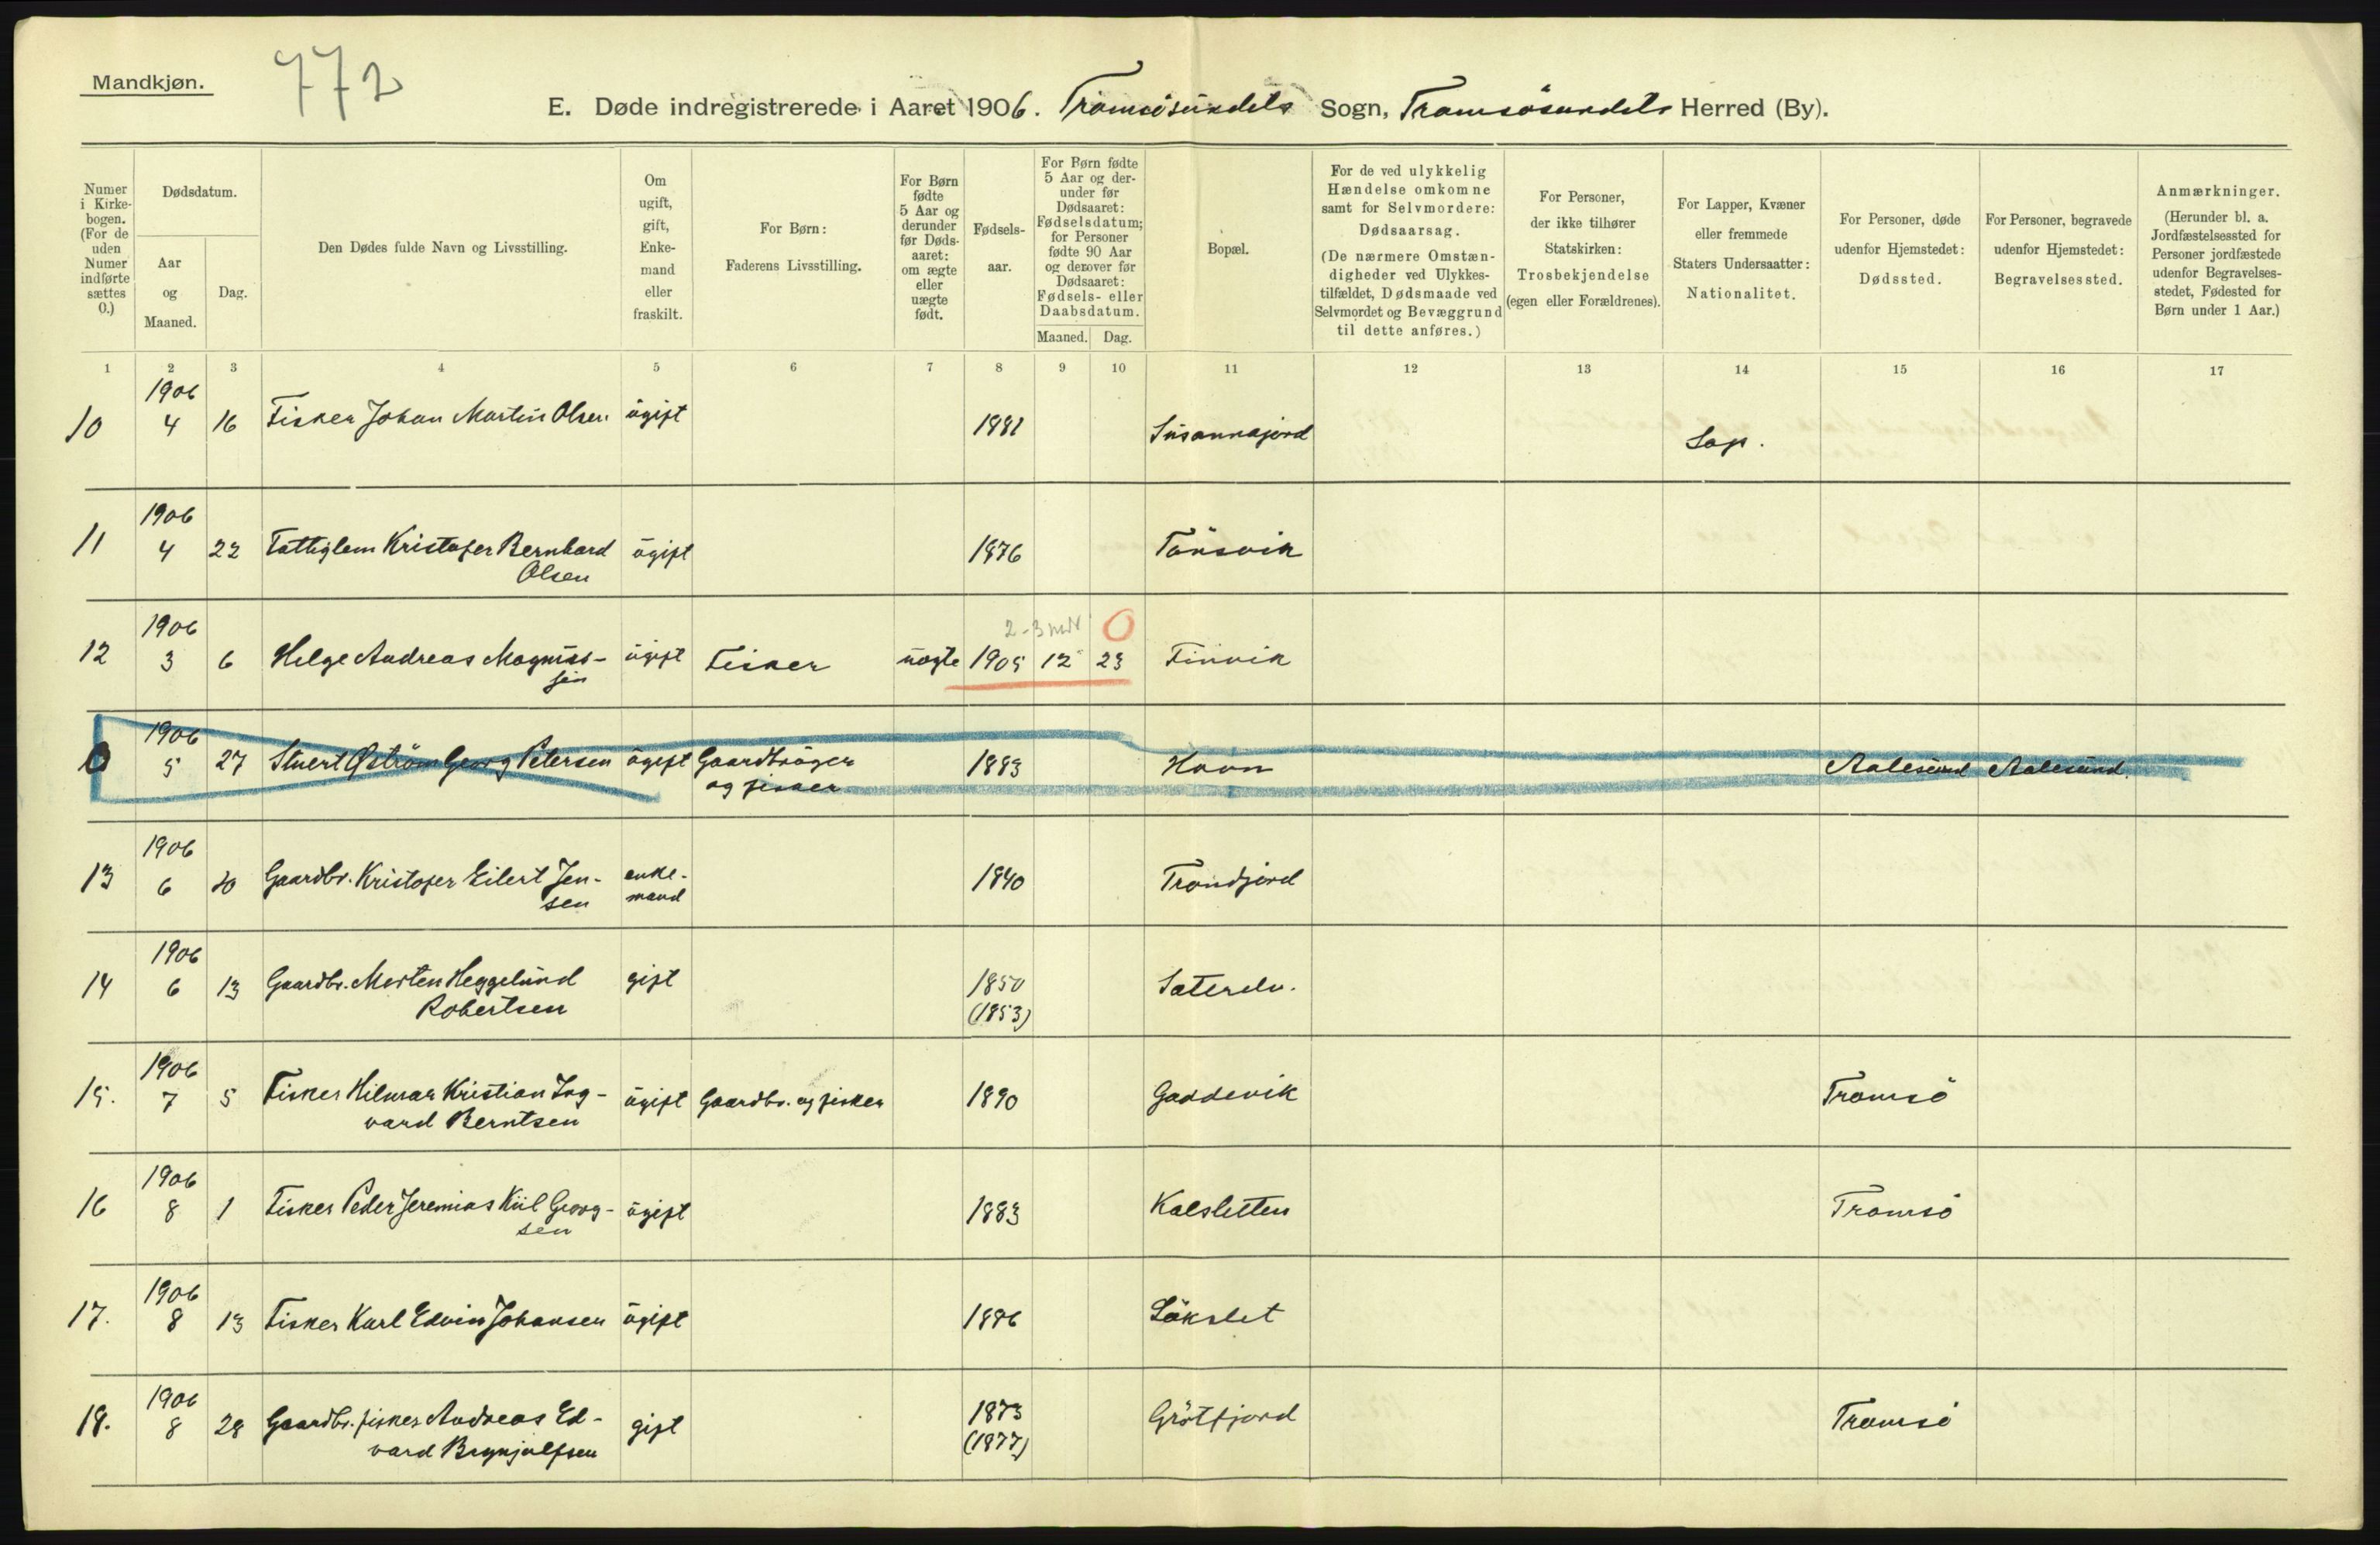 Mandkjøn.
772
E. Døde indregistrerede i Aaret 1906. Tromsösundets Sogn, Tromsösundets Herred (By).
Numer i Kirkebogen. (For de uden Numer indførte sættes 0.)
Dødsdatum.
Aar og Maaned.
Dag.
Den Dødes fulde Navn og Livsstilling.
Om ugift, gift, Enkemand eller fraskilt.
For Børn: Faderens Livsstilling.
For Børn fødte 5 Aar og derunder før Dødsaaret: om ægte eller uægte født.
Fødselsaar.
For Børn fødte 5 Aar og derunder før Dødsaaret: Fødselsdatum; for Personer fødte 90 Aar og derover før Dødsaaret: Fødsels- eller Daabsdatum.
Maaned. Dag.
Bopæl.
For de ved ulykkelig Hændelse omkomne samt for Selvmordere: Dødsaarsag. (De nærmere Omstændigheder ved Ulykkestilfældet, Dødsmaade ved Selvmordet og Bevæggrund til dette anføres.)
For Personer, der ikke tilhører Statskirken: Trosbekjendelse (egen eller Forældrenes).
For Lapper, Kvæner eller fremmede Staters Undersaatter: Nationalitet.
For Personer, døde udenfor Hjemstedet: Dødssted.
For Personer, begravede udenfor Hjemstedet: Begravelsessted.
Anmærkninger. (Herunder bl. a. Jordfæstelsessted for Personer jordfæstede udenfor Begravelsesstedet, Fødested for Børn under 1 Aar.)
1 2 3 4 5 6 7 8 9 10 11 12 13 14 15 16 17
1906
10 4 16 Fisker Johan Martin Olsen ugift 1881 Susannajord Lap.
1906
11 4 22 Fattiglem Kristofer Bernhard ugift 1876 Tönsvik
Olsen
1906 2-3 mdr 0
12 3 6 Helge Andreas Magnus- ugift Fisker uægte 1905 12 23 Finvik
sen
1906
0 5 27 Stuert Øström Georg Petersen ugift Gaardbruger 1883 Havn Aalesund Aalesund.
og fisker
1906
13 6 20 Gaardbr. Kristofer Eilert Jen- enke- 1840 Trondjord
sen mand
1906
14 6 13 Gaardbr. Morten Heggelund gift 1850 Saterelv.
Robertsen (1853)
1906
15. 7 5 Fisker Hilmar Kristian Ing- ugift Gaardbr. og fisker 1890 Gaddevik Tromsö
vard Berntsen
1906
16 8 1 Fisker Peder Jeremias Kiil Georg- ugift 1883 Kalsletten Tromsö
sen
1906
17. 8 13 Fisker Karl Edvin Johansen ugift 1886 Lökslet
1906
18. 8 28 Gaardbr. fisker Andreas Ed- gift 1873 Grötfjord Tromsö
vard Brynjulfsen (1877)